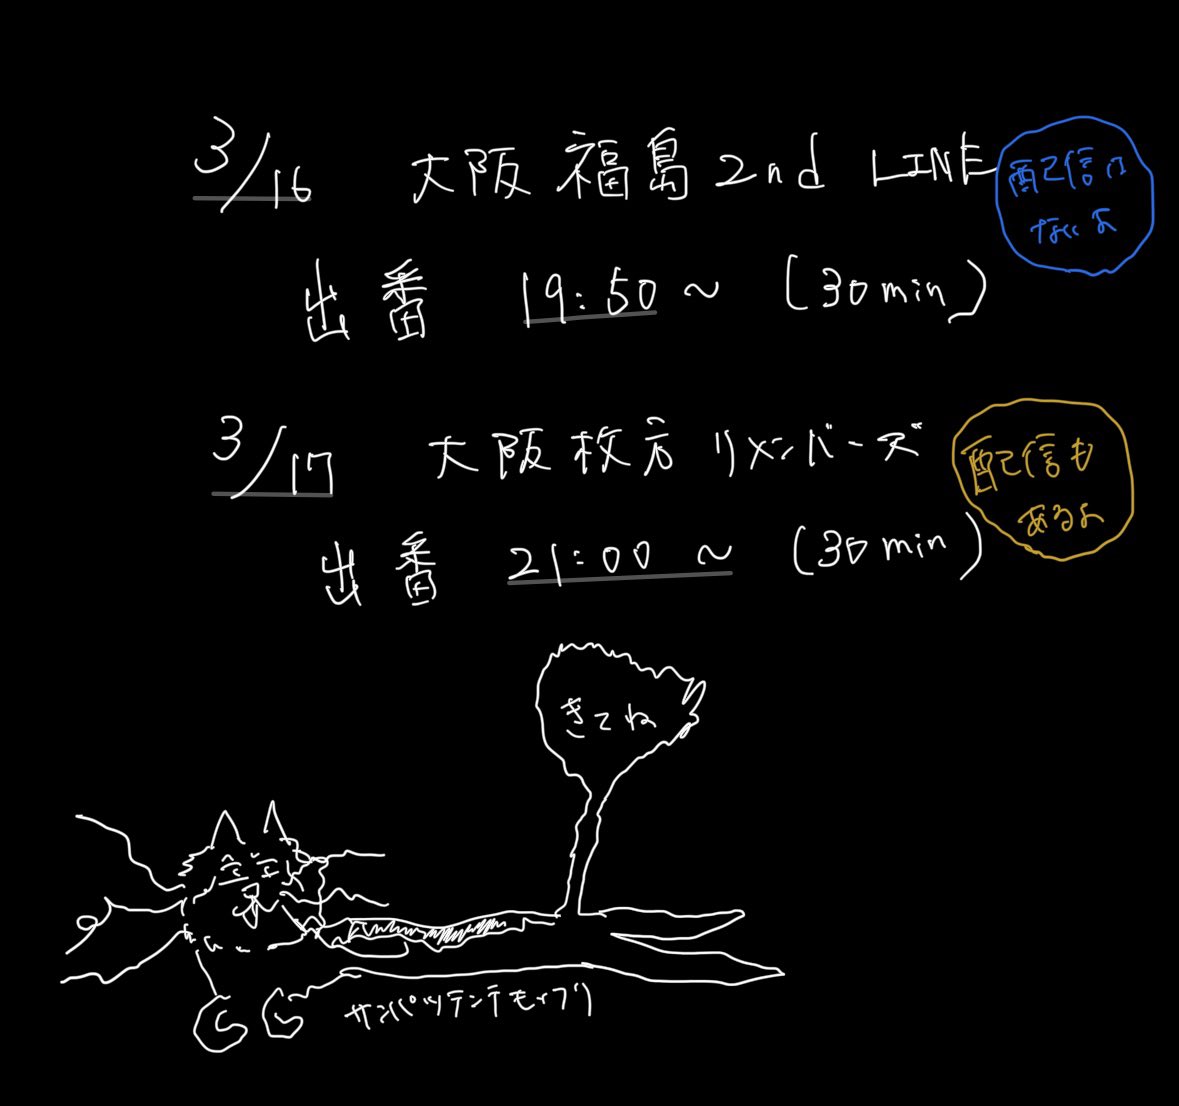 3/16 大阪 福島 2nd LINE
配信は
ないよ
出番 19:50~ (30min)
3/17 大阪枚方 リメンバーズ
配信も
あるよ
出番 21:00~ (30min)
きてね
サンパツテンテモップ